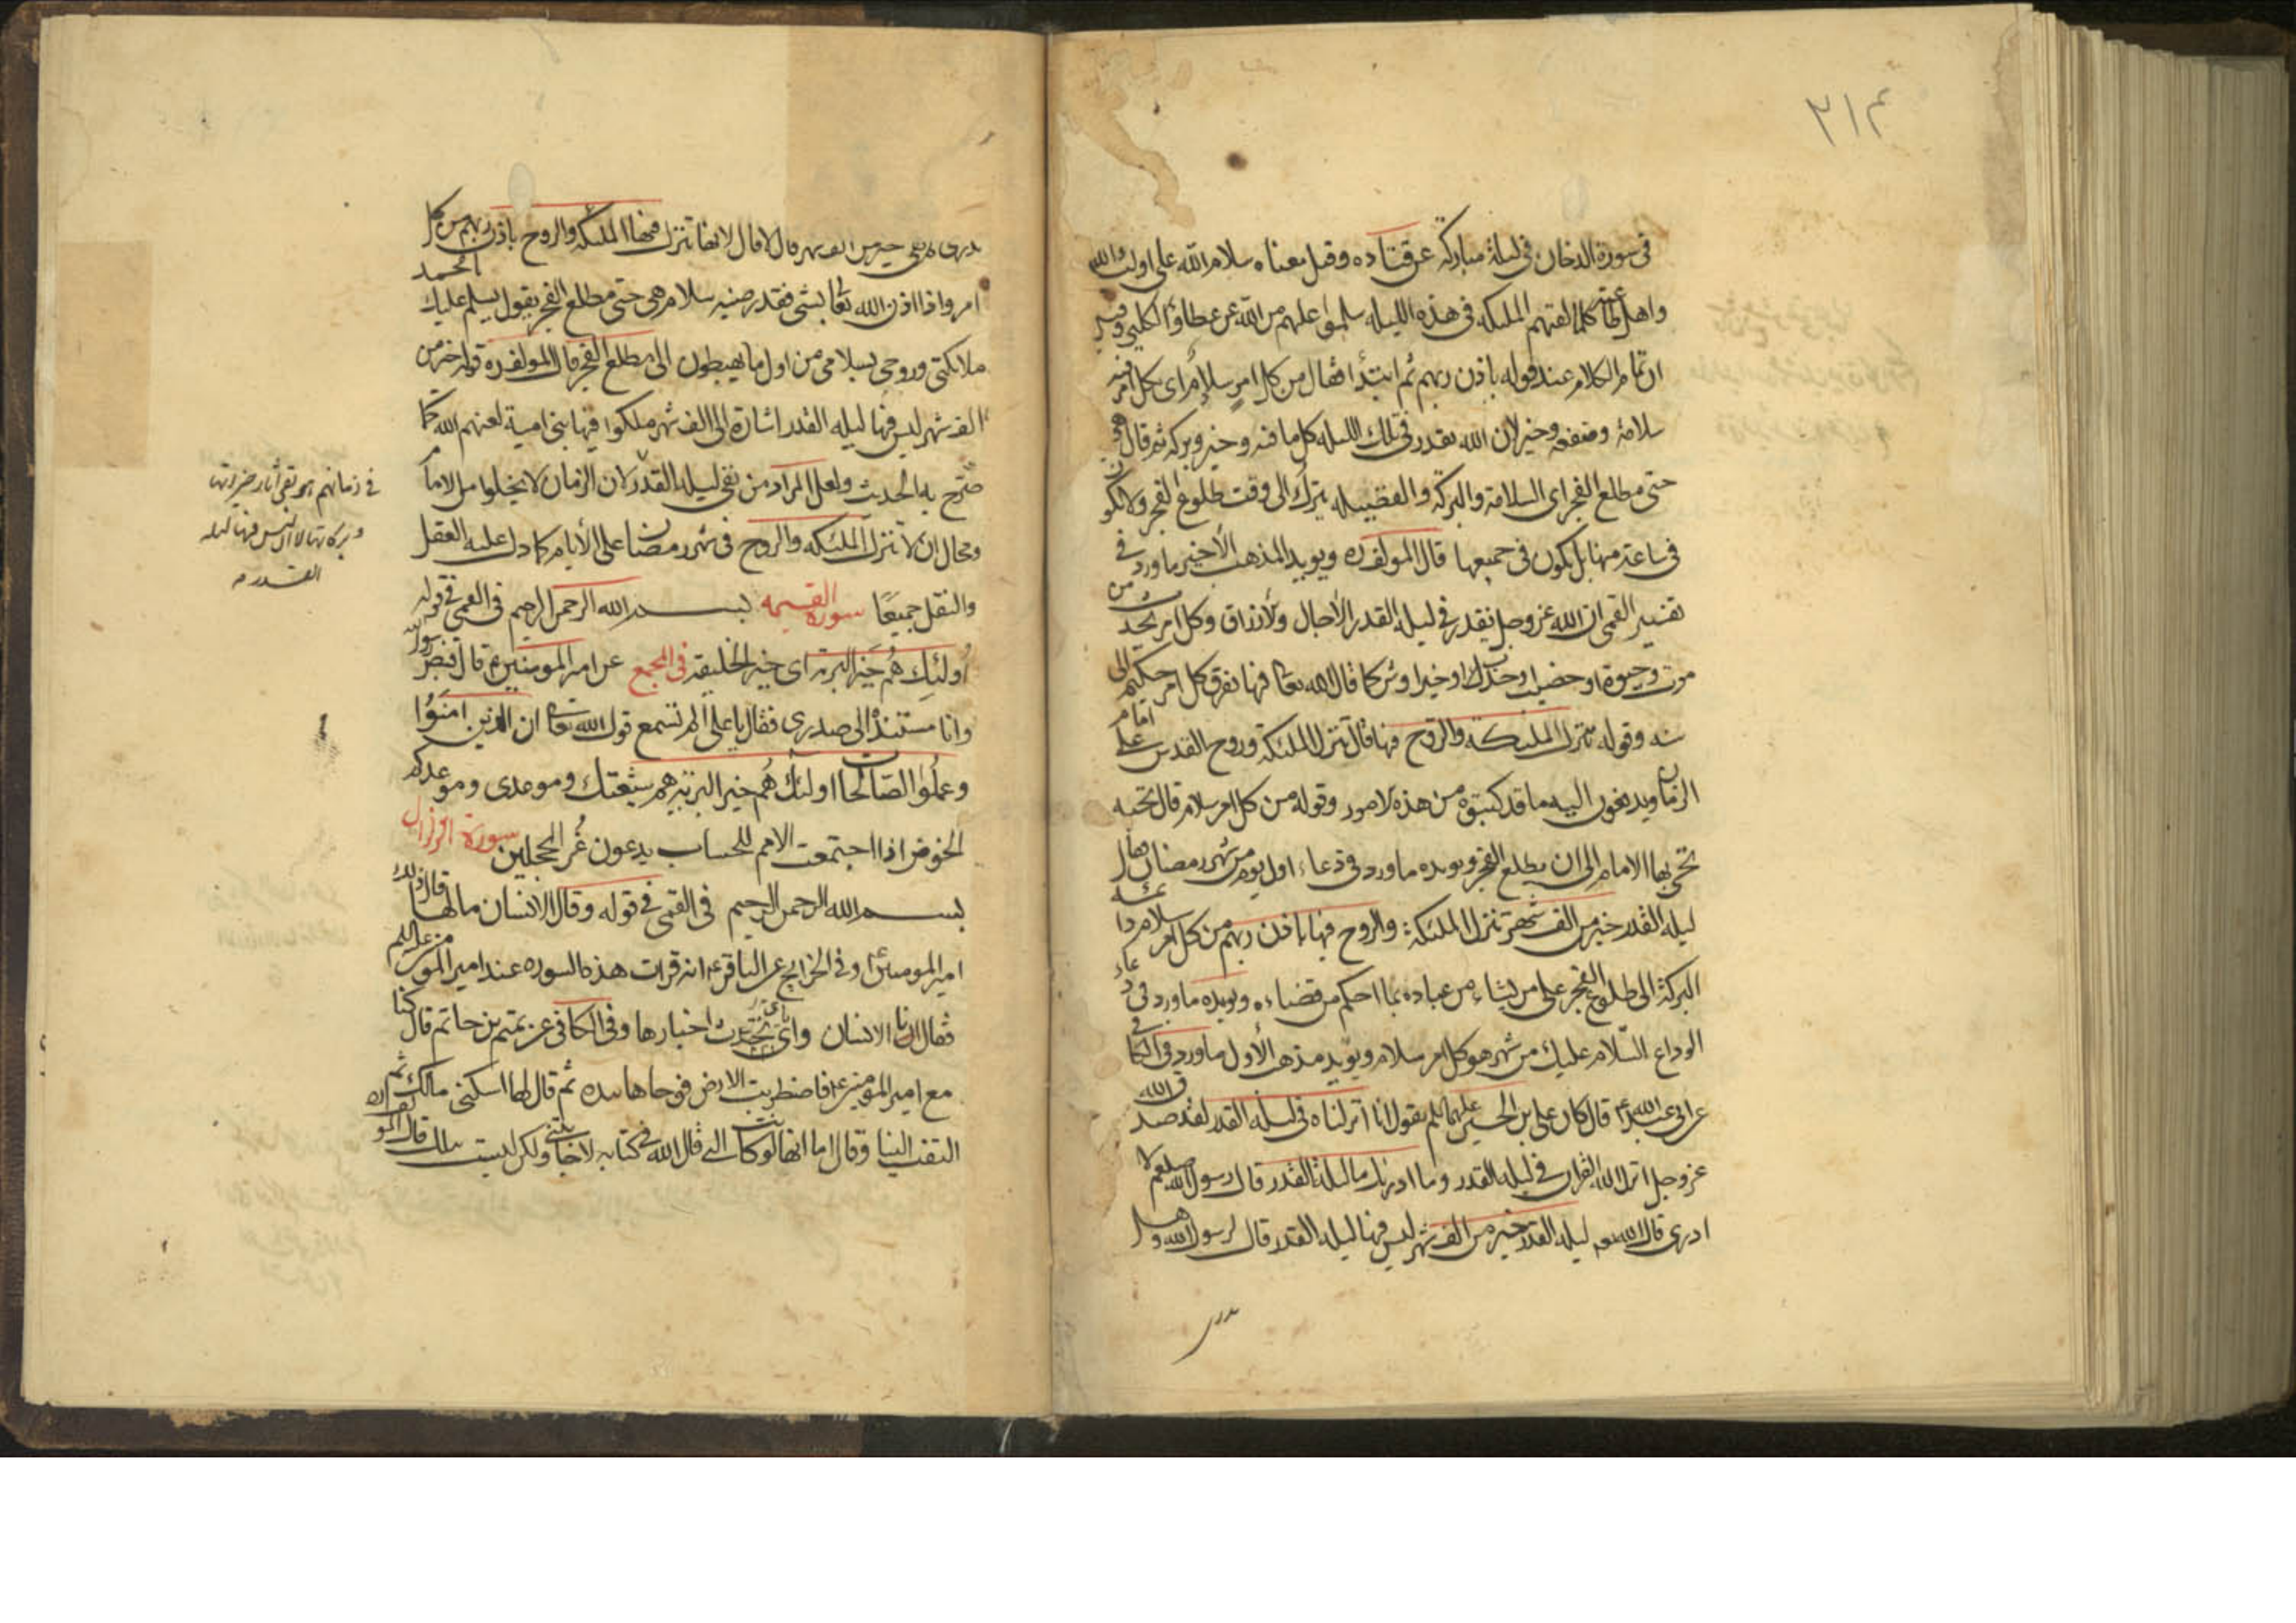 ٣١٢
في سورة الدخان في ليلة مباركة عن قتادة وقيل معناه سلام الله على اولياء الله
واهل طاعته كلما لقيهم الملئكة في هذه الليلة سلموا عليهم من الله عن عطاء والكلبي وقيل
ان تمام الكلام عند قوله باذن ربهم ثم ابتدأ فقال من كل امر سلام اى بكل امر فيه
سلامة ومنفعة وخير لان الله يقدر في تلك الليلة كل ما فيه وخير وبركة ثم قال هى
حتى مطلع الفجر اى السلامة والبركة والفضيلة يترك الى وقت طلوع الفجر ولا يكون
في ساعة منها بل يكون في جميعها قال المولف ره ويويد المذهب الأخير ما ورد في
تفسير القمى ان الله عز وجل يقدر في ليلة القدر الأجال والأرزاق وكل امر يحدث من
موت وحيوة او خصب او جدب او خير او شر كما قال الله تعا فيها يفرق كل امر حكيم الى
سنة وقوله تنزل الملئكة والروح فيها قال تنزل الملئكة وروح القدس على امام
الزمان ويدفعون اليه ما قد كتبوه من هذه الامور وقوله من كل امر سلام قال تحية
تحيى بها الامام الى ان يطلع الفجر ويويده ما ورد في دعاء اول يوم من شهر رمضان
ليلة القدر خير من الف شهر تنزل الملئكة والروح فيها باذن ربهم من كل امر سلام دائم
البركة الى طلوع الفجر على من يشاء من عباده بما احكم من قضاءه ويويده ما ورد في دعاء
الوداع السلام عليك من شهر هو كل امر سلام ويويد مذهب الأول ما ورد في الكافي
عن ابي عبد الله ع قال كان على بن الحسين عليهما السلم يقول انا انزلناه في ليلة القدر صدق الله
عز وجل انزل الله القران في ليلة القدر وما ادريك ما ليلة القدر قال رسول الله صلعم لا
ادرى قال الله تعه ليلة القدر خير من الف شهر ليس فيها ليلة القدر قال لرسول الله وهل
تدرى
تدرى لم هى خير من الف شهر قال لا قال لانها تنزل فيها الملئكة والروح باذن ربهم من كل
امر واذا اذن الله تعا بشئ فقد رضيه سلام هى حتى مطلع الفجر يقول يسلم عليك يا محمد
ملائكتى وروحى بسلامى من اول ما يهبطون الى مطلع الفجر قال المولف ره قوله خير من
الف شهر ليس فيها ليلة القدر اشارة الى الف شهر ملكوا فيها بنى امية لعنهم الله كما
صرح به الحديث ولعل المراد من نفى ليلة القدر لان الزمان لا يخلوا من الامام
ومحال ان لا تنزل الملئكة والروح في شهر رمضان على الأيام كما دل عليه العقل
والنقل جميعًا سورة القيمه بسم الله الرحمن الرحيم في القمى في قوله
أولئك هم خير البرية اى خير الخليقة في المجمع عن امير المومنين ع قال قبض رسول الله
وانا مستنده الى صدرى فقال يا على الم تسمع قول الله تعا ان الذين امنوا
وعملوا الصالحات اولئك هم خير البرية هم شيعتك وموعدى وموعدكم
الحوض اذا اجتمعت الامم للحساب يدعون غُر المحجلين سورة الزلزال
بسم الله الرحمن الرحيم في القمى في قوله وقال الانسان مالها قال ذلك
امير المومنين ع وفي الخرايج عن الباقر ع انه قرات هذه السورة عند امير المومنين عليه السلم
فقال انا الانسان واياى تحدث اخبارها وفي الكافى عن تميم بن حاتم قال كنا
مع امير المومنين ع فاضطربت الارض فوحاها بيده ثم قال لها اسكنى مالك ثم
التفت الينا وقال اما انها لو كانت التى قال الله في كتابه لاجابتنى ولكن ليست بتلك قال المولف ره
في زمانهم لم يبق آثار خيراتها
وبركاتها لا ان ليس فيها ليلة
القدر منه